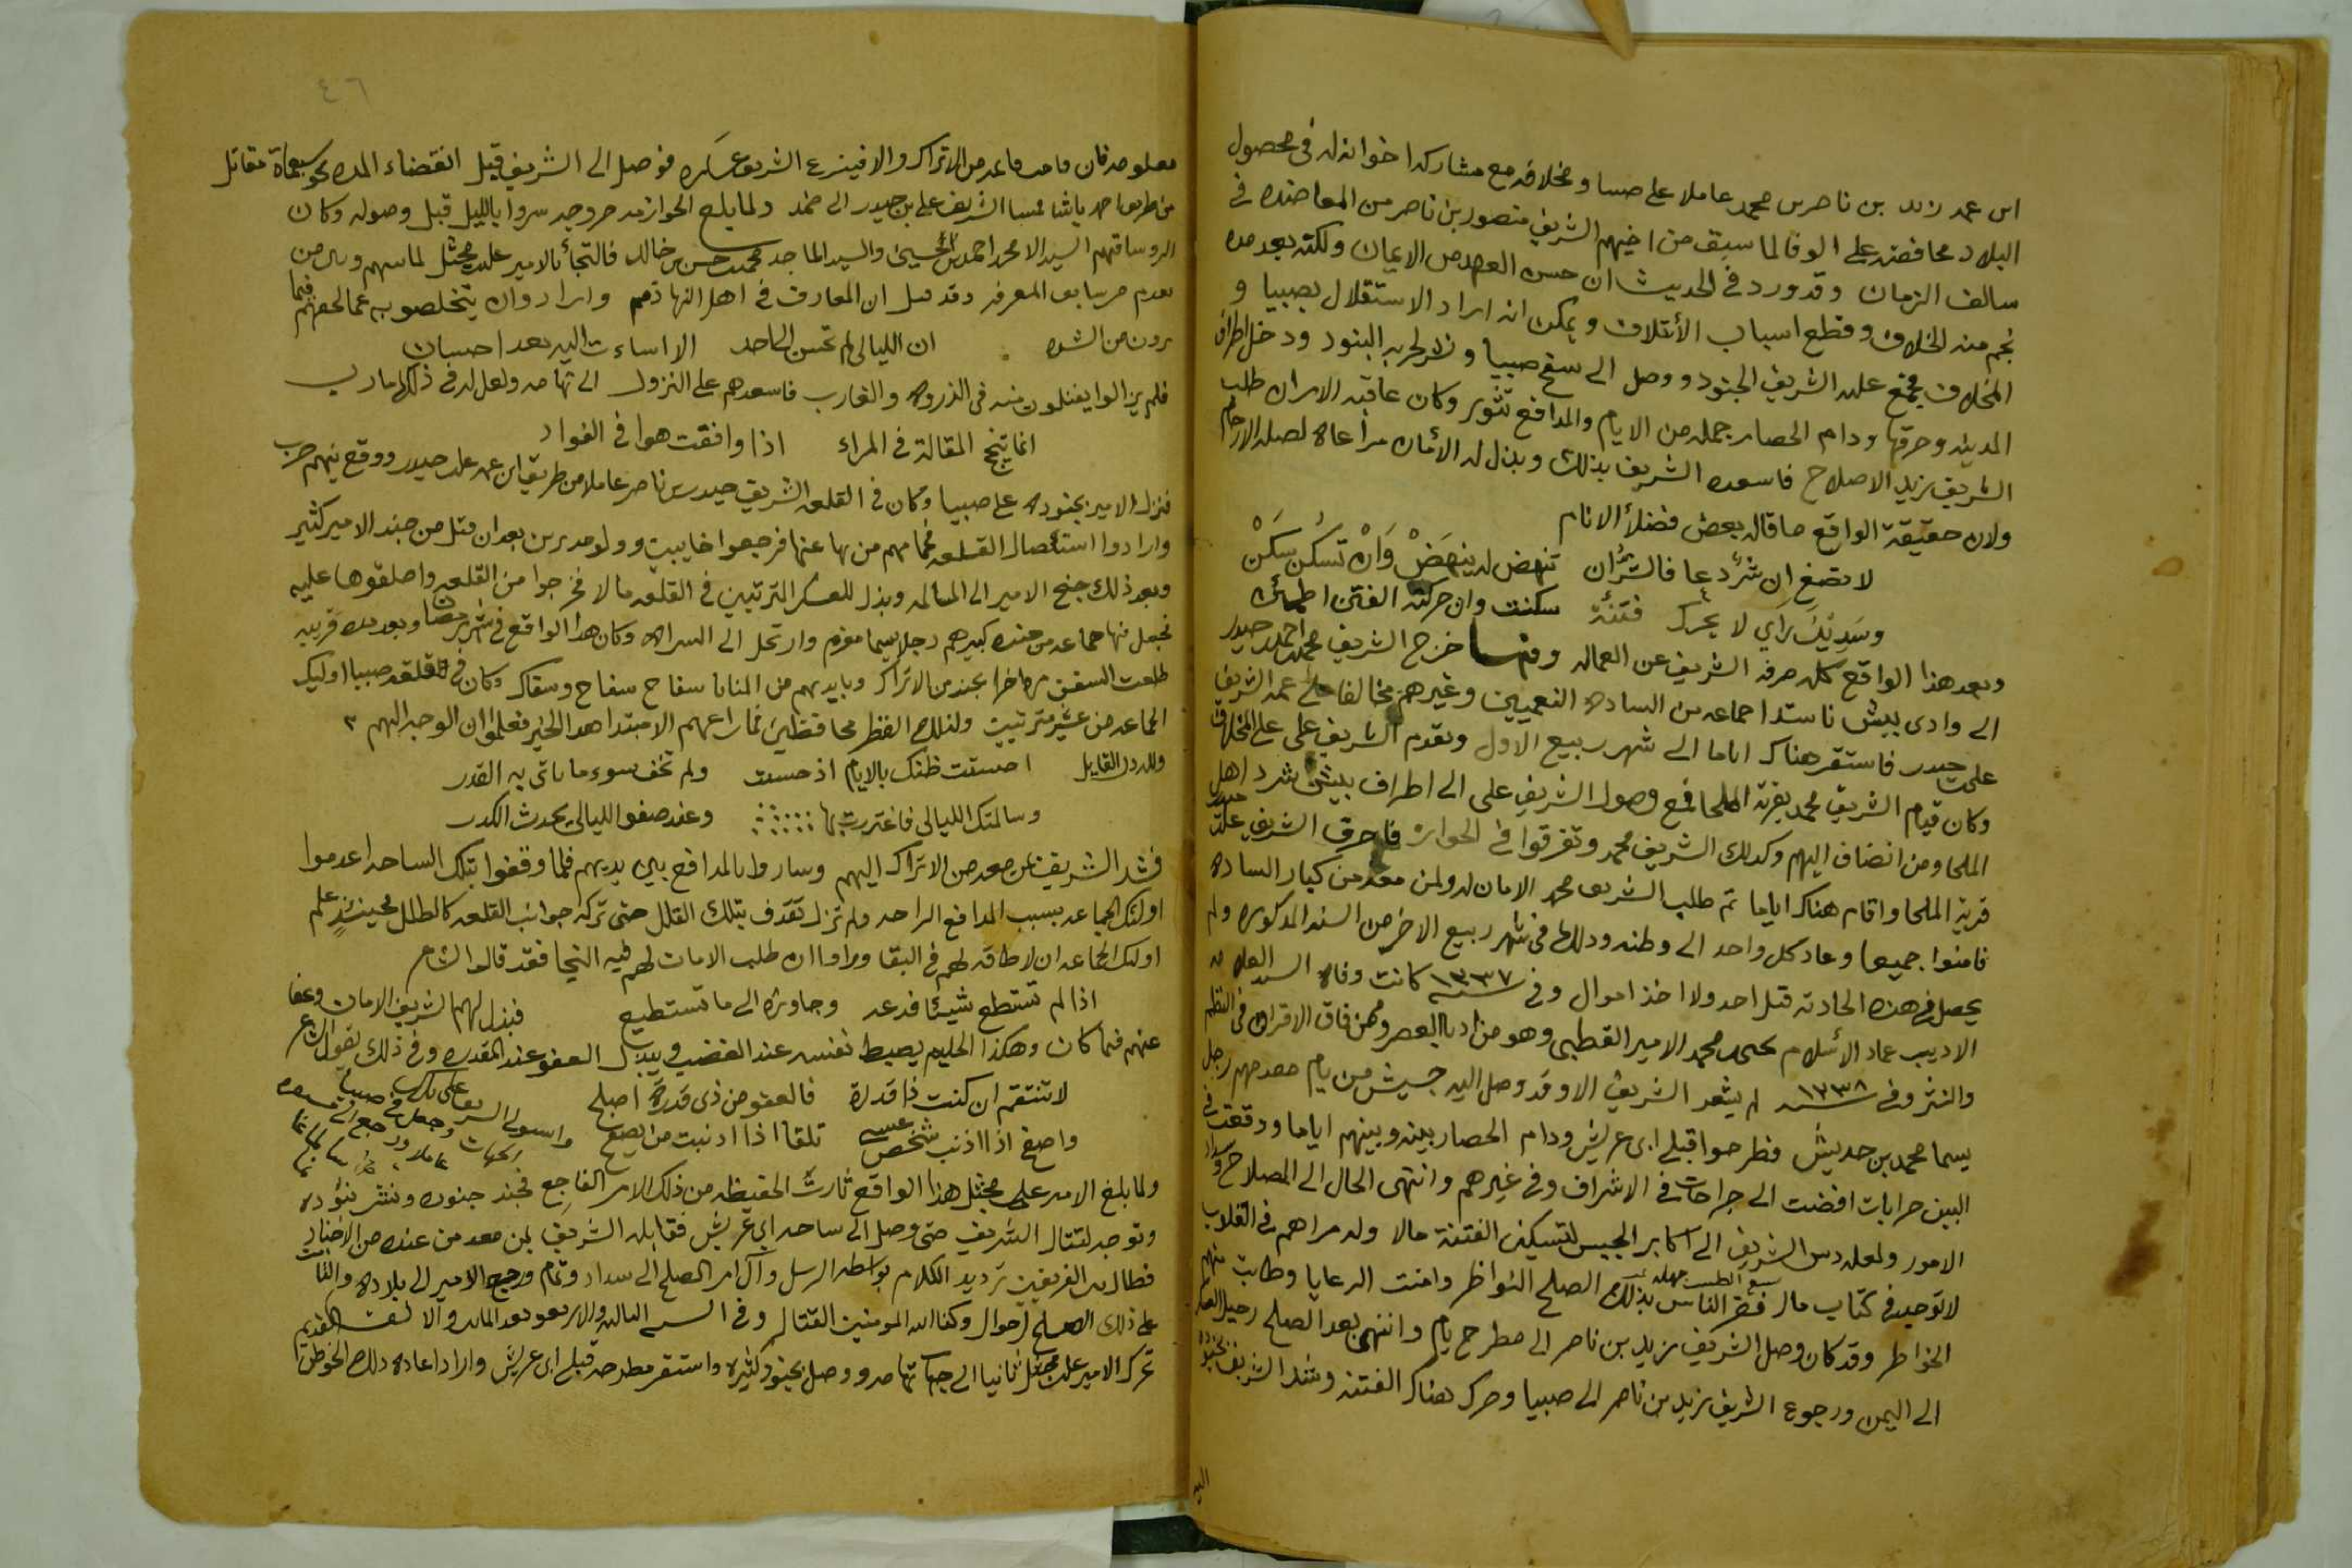 ابن عمه زيد بن ناصر بن محمد عاملا على صبيا ومخلافه مع مشاركه اخوانه له في محصول
البلاد محافضه على الوفا لما سبق من اخيهم الشريف منصور بن ناصر من المعاضده في
سالف الزمان وقد ورد في الحديث ان حسن العهد من الايمان ولكنه بعد مده
نجم منه الخلاف وقطع اسباب الأئتلاف ويمكن انه اراد الاستقلال بصبيا و
المخلاف فجمع عليه الشريف الجنود ووصل الى سفح صبيا ونشر لحربه البنود ودخل اطراف
المدينه وحرقها ودام الحصار جمله من الايام والمدافع تثور وكان عاقبه الامر ان طلب
الشريف زيد الاصلاح فاسعده الشريف بذلك وبذل له الأمان مراعاه لصله الارحام
ولان حقيقة الواقع ما قاله بعض فضلأ الانام
لا تصغ ان شرٌ دعا فالشر ان تنهض له ينهض وان تسكن سكن
وسديك راي لا يحرك فتنة سكنت وان حركته الفتن اطمأن
وبعد هذا الواقع كله صرفه الشريف عن العماله وفيها خرج الشريف محمد بن احمد حيدر
الى وادي بيش ناستدا جماعه من الساده النعميين وغيرهم مخالفا على عمه الشريف
علي بن حيدر فاستقر هناك اياما الى شهر ربيع الاول وتقدم الشريف علي على المخلاف
وكان قيام الشريف محمد بقرية الملحا فمع وصول الشريف على الى اطراف بيش شرد اهل
الملحا ومن انضاف اليهم وكذلك الشريف محمد وتفرقوا في الحوازه فاحرق الشريف علي بن حيدر
قرية الملحا واقام هناك اياما ثم طلب الشريف محمد الامان له ولمن معه من كبار الساده
فامنوا جميعا وعاد كل واحد الى وطنه وذلك في شهر ربيع الاخر من السنه المذكوره ولم
يحصل في هذه الحادثه قتل احد ولا اخذ اموال وفي سنه ١٢٣٧ كانت وفاه السيد العلامه
الاديب عماد الأسلام يحيى بن محمد الامير القطبي وهو من ادبا العصر وممن فاق الاقران في النظم
والنثر وفي سنه ١٢٣٨ لم يشعر الشريف الا وقد وصل اليه جيش من يام مقدمهم رجل
يسما محمد بن حديش فطرحوا قبلي ابي عريش ودام الحصار بينه وبينهم اياما ووقعت في
البين حرابات افضت الى جراحات في الاشراف وفي غيرهم وانتهى الحال الى المصلاح وسداد
الامور ولعله دس الشريف الى اكابر الجيش لتسكين الفتنة مالا وله مراهم في القلاب
لا توجد في كتاب مال فقر الناس بذلك الصلح النواظر وامنت الرعايا وطابت منهم
الخواطر وقد كان وصل الشريف زيد بن ناصر الى مطرح يام وانتهى بعد الصلح رحيل العسكر
الى اليمن ورجوع الشريف زيد بن ناصر الى صبيا وحرك هناك الفتنه وشد الشريف بجنوده
اليه
٤٦
من الاتراك الشريف عسكره فوصل الى الشريف قبل انقضاء المده نحو سبعمائة مقاتل
الشريف علي بن حيدر الى ضمد ولما بلغ الحوازمه خروجه سروا بالليل قبل وصوله وكان
السيد الامجد احمد بن الحسين والسيد الماجد محمد بن حسن بن خالد فالتجأ بالامير علي بن مجثل لما بينهم وبين من
تقدم من سابق المعرفه وقد قيل ان المعارف في اهل النها ذمم وارادوا ان يتخلصوا به عما لحقهم فيما
يرون من الشده ان الليالي لم تحسن الى احد الا اساءت اليه بعد احسان
فلم يزالوا يفتلون منه في الذروه والغارب فاسعدهم على النزول الى تهامه ولعل له في ذلك مارب
انما تنجح المقالة في المراء اذا وافقت هوا في الفواد
فنزل الامير بجنوده على صبيا وكان في القلعه الشريف حيدر بن ناصر عاملا من طريق ابن عمه علي بن حيدر ووقع بينهم حرب
وارادوا استئصال القلعه فحماهم من بها عنها فرجعوا خايبين وولو مدبرين بعد ان قتل من جند الامير كثير
وبعد ذلك جنح الامير الى المسالمه وبذل للعسكر المترتبين في القلعه مالا فخرجوا من القلعه واصلقوها عليه
فجعل فيها جماعه من جنده كبيرهم رجل يسما مفرم وارتحل الى السراه وكان هذا الواقع في شهر رمضان وبعد مده قريبه
طلعت السفن من اخرا بجند من الاتراك وبايديهم من المنايا سفاح سفاح وسفاك وكان في قلعه صبيا اوليك
الجماعه من عشير مترتبين ولذلك الفظر محافظين فما راعهم الا مبتدا هذا الخبر فعلموا ان الوجه اليهم
ولله در القايل احسنت ظنك بالايام اذ حسنت ولم تخف سوء ما ياتي به القدر
وسالمتك الليالي فاغتررت بها وعند صفو الليالي يحدث الكدر
فشد الشريف بمن معه من الاتراك اليهم وساروا بالمدافع بين يديهم فلما وقفوا بتلك الساحه اعدموا
اولئك الجماعه بسبب المدافع الراحه ولم تزل تقذف بتلك القلل حتى تركة جوانب القلعه كالطلل فحينئذٍ علم
اولئك الجماعه ان لا طاقه لهم في البقا وراوا ان طلب الامان لهم فيه النجا فقد قال الشاعر
اذا لم تستطع شيئا فدعه وجاوزه الى ما تستطيع فبذل لهم الشريف الامان وعفا
عنهم فيما كان وهكذا الحليم يضبط نفسه عند الغضب ويبذل العفو عند المقدره وفي ذلك يقول الشاعر
لا تنتقم ان كنت ذا قدرة فالعفو من ذي قدرة اصلح
واصفح اذا اذنب شخص عسى تلقا اذا اذنبت من يصفح
ولما بلغ الامير علي بن مجثل هذا الواقع ثارت الحفيظه من ذلك الامر الفاجع فجند جنوده ونشر بنوده
وتوجه لقتال الشريف حتى وصل الى ساحه ابي عريش فقابله الشريف بمن معه من عنده من الاجناد
فطال بين الفريقين ترديد الكلام بواسطه الرسل وآل امر الصلح الى سداد وتمام ورجع الامير الى بلاده
على ذلك الصلح لاحوال وكفا الله المومنين القتال وفي السنه الثالثه والاربعو بعد المائتين والالف
تحرك الامير علي بن مجثل ثانيا الى جهات تهامه ووصل بجنود كثيره واستقر مطرحه قبلي ابي عريش واراد اعاده ذلك